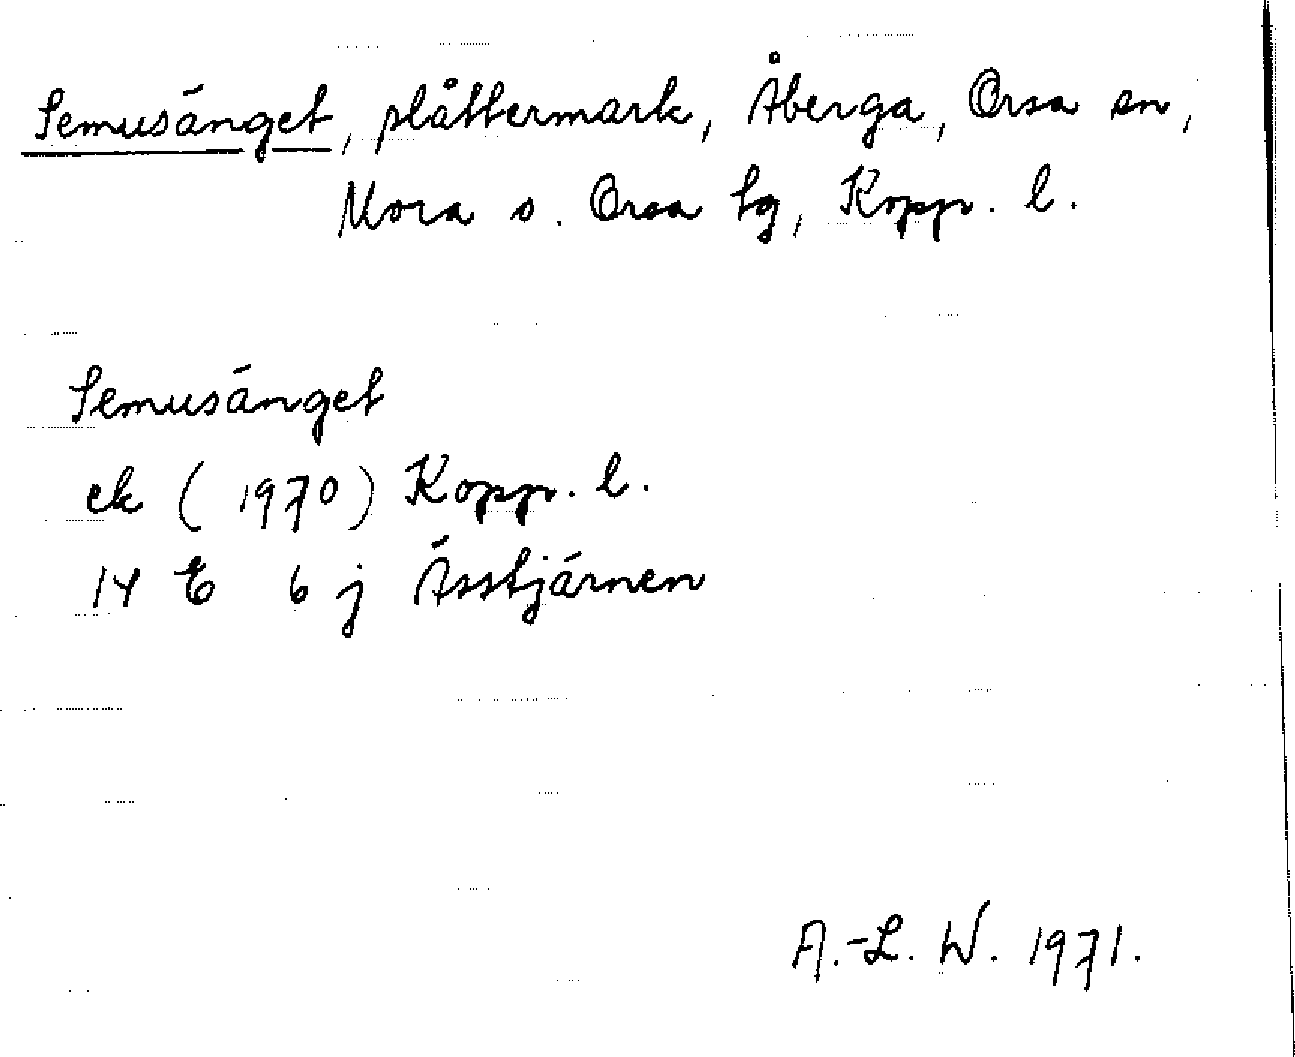 Semusänget, plåttermark, Åberga, Orsa sn,
Mora o. Orsa tg, Kopp. l.
Semusänget
ek (1970) Kopp. l.
14 E 6 j Ässtjärnen
A.-L. W. 1971.